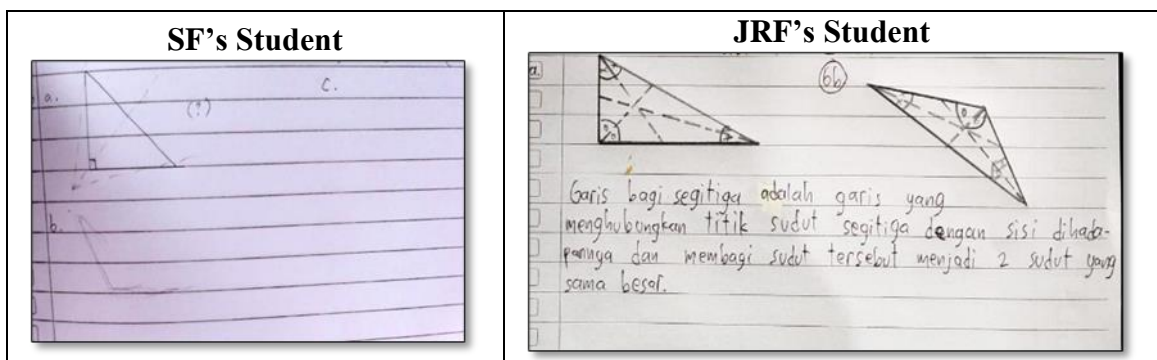 SF's Student
a.
(?)
c.
b.
JRF's Student
a.
6b
Garis bagi segitiga adalah garis yang
menghubungkan titik sudut segitiga dengan sisi dihada-
pannya dan membagi sudut tersebut menjadi 2 sudut yang
sama besar.